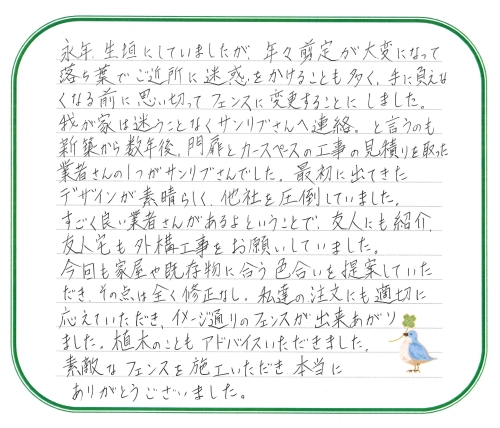 永年、生垣にしていましたが、年々剪定が大変になって
落ち葉でご近所に迷惑をかけることも多く、手に負えな
くなる前に思い切ってフェンスに変更することにしました。
我が家は迷うことなくサンリブさんへ連絡。と言うのも
新築から数年後、門扉とカースペースの工事の見積りを取った
業者さんの1つがサンリブさんでした。最初に出てきた
デザインが素晴らしく、他社を圧倒していました。
すごく良い業者さんがあるよということで、友人にも紹介、
友人宅も外構工事をお願いしていました。
今回も家屋や既存物に合う色合いを提案していた
だき、その点は全く修正なし。私達の注文にも適切に
応えていただき、イメージ通りのフェンスが出来あがり
ました。植木のこともアドバイスいただきました。
素敵なフェンスを施工いただき本当に
ありがとうございました。